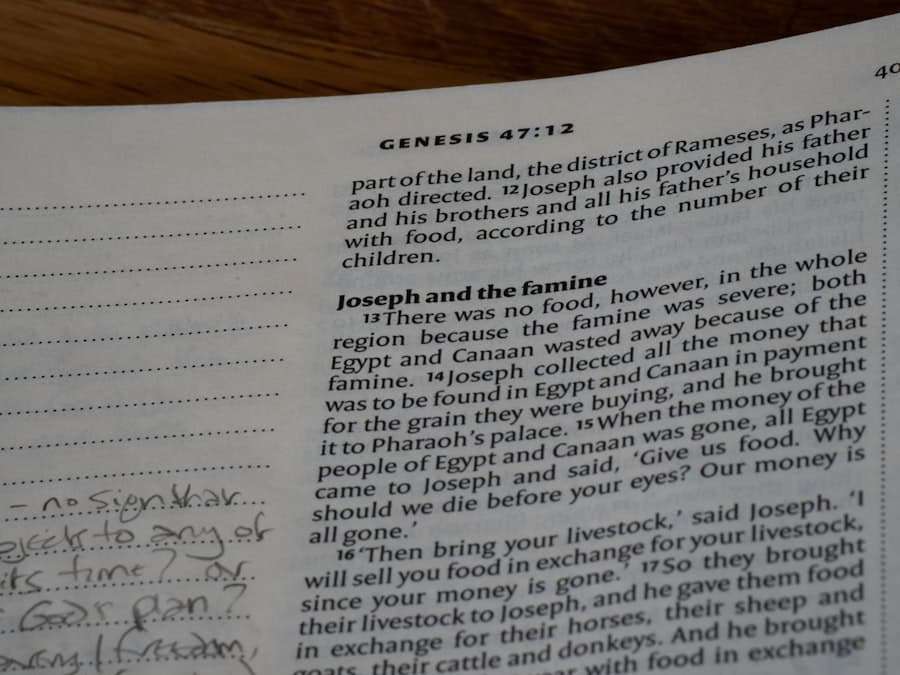 40
GENESIS 47:12
part of the land, the district of Rameses, as Phar-
aoh directed. 12Joseph also provided his father
and his brothers and all his father's household
with food, according to the number of their
children.
Joseph and the famine
13There was no food, however, in the whole
region because the famine was severe; both
Egypt and Canaan wasted away because of the
famine. 14Joseph collected all the money that
was to be found in Egypt and Canaan in payment
for the grain they were buying, and he brought
it to Pharaoh's palace. 15When the money of the
people of Egypt and Canaan was gone, all Egypt
came to Joseph and said, 'Give us food. Why
should we die before your eyes? Our money is
all gone.'
16'Then bring your livestock,' said Joseph. 'I
will sell you food in exchange for your livestock,
since your money is gone.' 17So they brought
their livestock to Joseph, and he gave them food
in exchange for their horses, their sheep and
goats, their cattle and donkeys. And he brought
with food in exchange
- no sign that
to any of
its time? or
God's plan?
freedom,